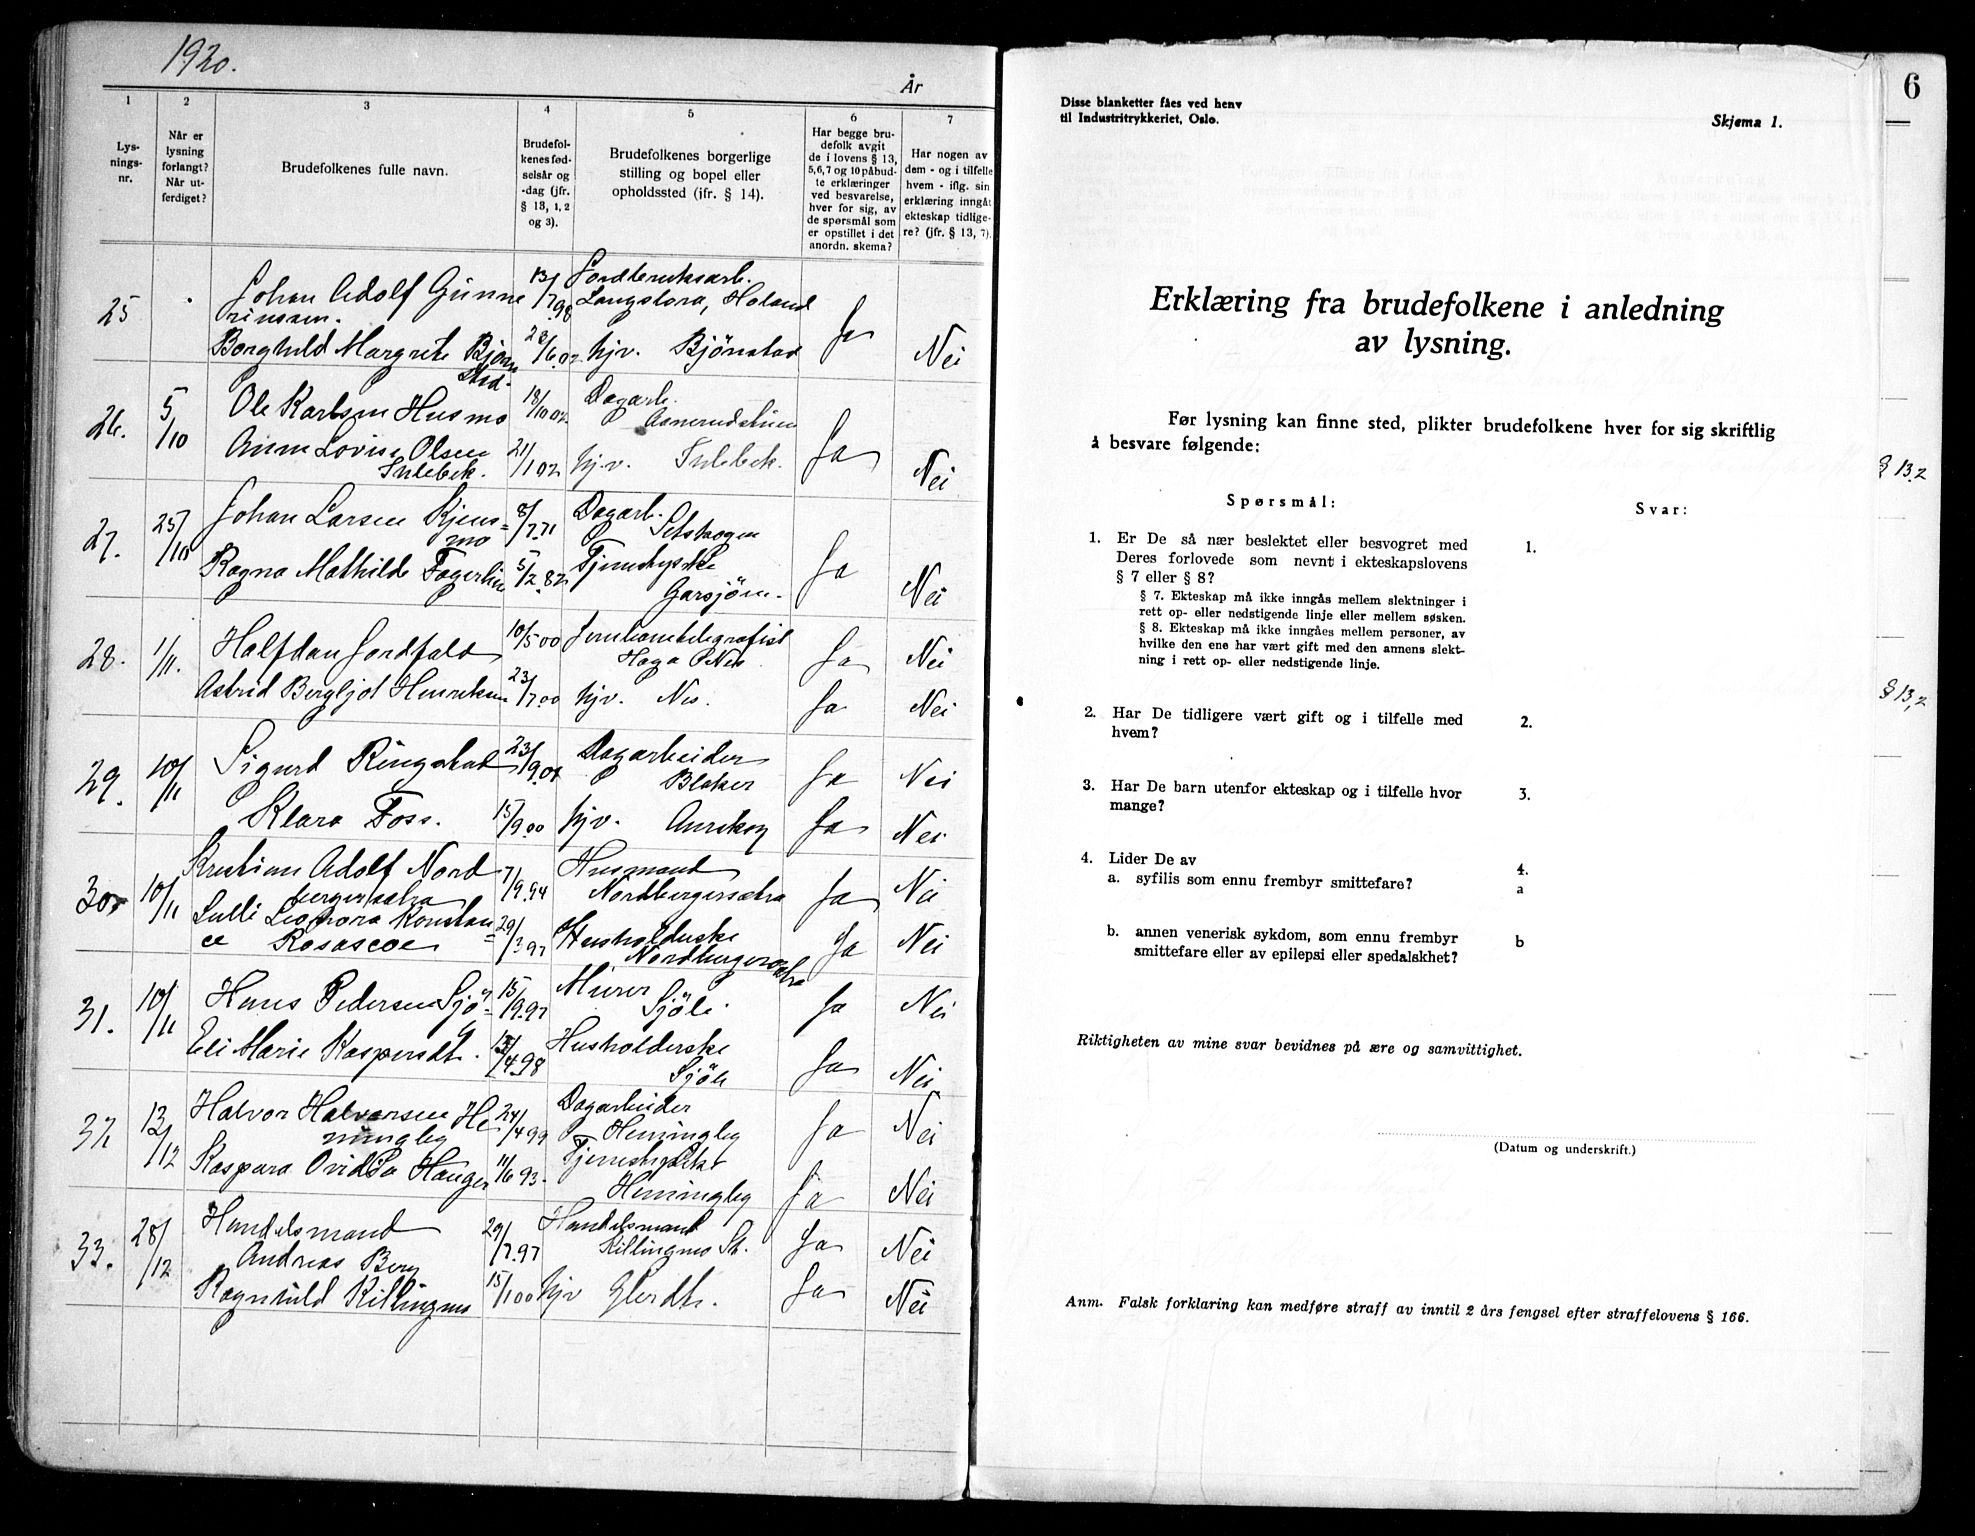 1920.
År
1
2
3
4
5
6
7
Lys-
nings-
nr.
Når er
lysning
forlangt?
Når ut-
ferdiget?
Brudefolkenes fulle navn.
Brudefol-
kenes fød-
selsår og
-dag (jfr.
§ 13, 1, 2
og 3).
Brudefolkenes borgerlige
stilling og bopel eller
opholdssted (jfr. § 14).
Har begge bru-
defolk avgit
de i lovens § 13,
5,6,7 og 10 påbud-
te erklæringer
ved besvarelse,
hver for sig, av
de spørsmål som
er opstillet i det
anordn. skema?
Har nogen av
dem - og i tilfelle
hvem - iflg. sin
erklæring inngåt
ekteskap tidlige-
re? (jfr. § 13, 7).
25 Johan Adolf Gunne 13/7.98 Jordbruksarb.
rinsen. Langstora, Høland
Borghild Margrete Bjørn 28/6.02 hjv. Bjönstad Ja Nei
stad.
26. 5/10 Ole Karlsen Husmo 18/10 02 Dagarb.
Anne Lovise Olsen 21/1 02 hjv. Tulebek. Ja Nei
Tulebek.
27. 25/10 Johan Larsen Kjens= 8/7.71 Dagarb.
mo Setskogen
Ragna Mathilde Fagerlien 5/2.82 Tjenestepike Ja Nei
Garsjöen.
28. 1/11. Halfdan Jordfald 10/5 00 Jernbanetelegrafist Ja Nei
Haga Nes
Astrid Bergljot Henriksen 23/7.00 hjv. Nes. Ja Nei
29. 10/11 Sigurd Ringstad 23/9.01 Dagarbeider Ja Nei
Blaker
Klara Foss. 15/9.00 hjv. Aurskog Ja Nei
30. 10/11 Kristian Adolf Nord 7/9.94 Husmand Ja Nei
bergersætra Nordbergersætra
Lulli Leonora Konstan= 29/3.97 Husholderske Ja Nei
ce Rosascoe Nordbergersætra
31. 10/11 Hans Pedersen Sjö= 15/9.97 Murer Ja Nei
Sjöli
Eli Marie Kaspersdtr. 13/4.98 Husholderske Ja Nei
Sjöli
32 12/12 Halvor Halvorsen He 24/4 99 Dagarbeider Ja Nei
mingby Hemingby
Kaspara Ovidia Hauger 11/6 93. Tjenestepike Ja Nei
Hemingby
33. 28/12 Handelsmand 29/7.97 Handelsmand Ja Nei
Andreas Berg Killingmo St.
Ragnhild Killingmo 15/1 00 hjv Ja Nei
6
Disse blanketter fåes ved henv
til Industritrykkeriet, Oslo.
Skjema 1.
Erklæring fra brudefolkene i anledning
av lysning.
Før lysning kan finne sted, plikter brudefolkene hver for sig skriftlig
å besvare følgende:
§ 13,2
Spørsmål:
Svar:
1. Er De så nær beslektet eller besvogret med 1.
Deres forlovede som nevnt i ekteskapslovens
§ 7 eller § 8?
§ 7. Ekteskap må ikke inngås mellem slektninger i
rett op- eller nedstigende linje eller mellem søsken.
§ 8. Ekteskap må ikke inngåes mellem personer, av
hvilke den ene har vært gift med den annens slekt-
ning i rett op- eller nedstigende linje.
§ 13,2
2. Har De tidligere vært gift og i tilfelle med 2.
hvem?
3. Har De barn utenfor ekteskap og i tilfelle hvor 3.
mange?
4. Lider De av 4.
a. syfilis som ennu frembyr smittefare? a
b. annen venerisk sykdom, som ennu frembyr b
smittefare eller av epilepsi eller spedalskhet?
Riktigheten av mine svar bevidnes på ære og samvittighet.
(Datum og underskrift.)
Anm. Falsk forklaring kan medføre straff av inntil 2 års fengsel efter straffelovens § 166.